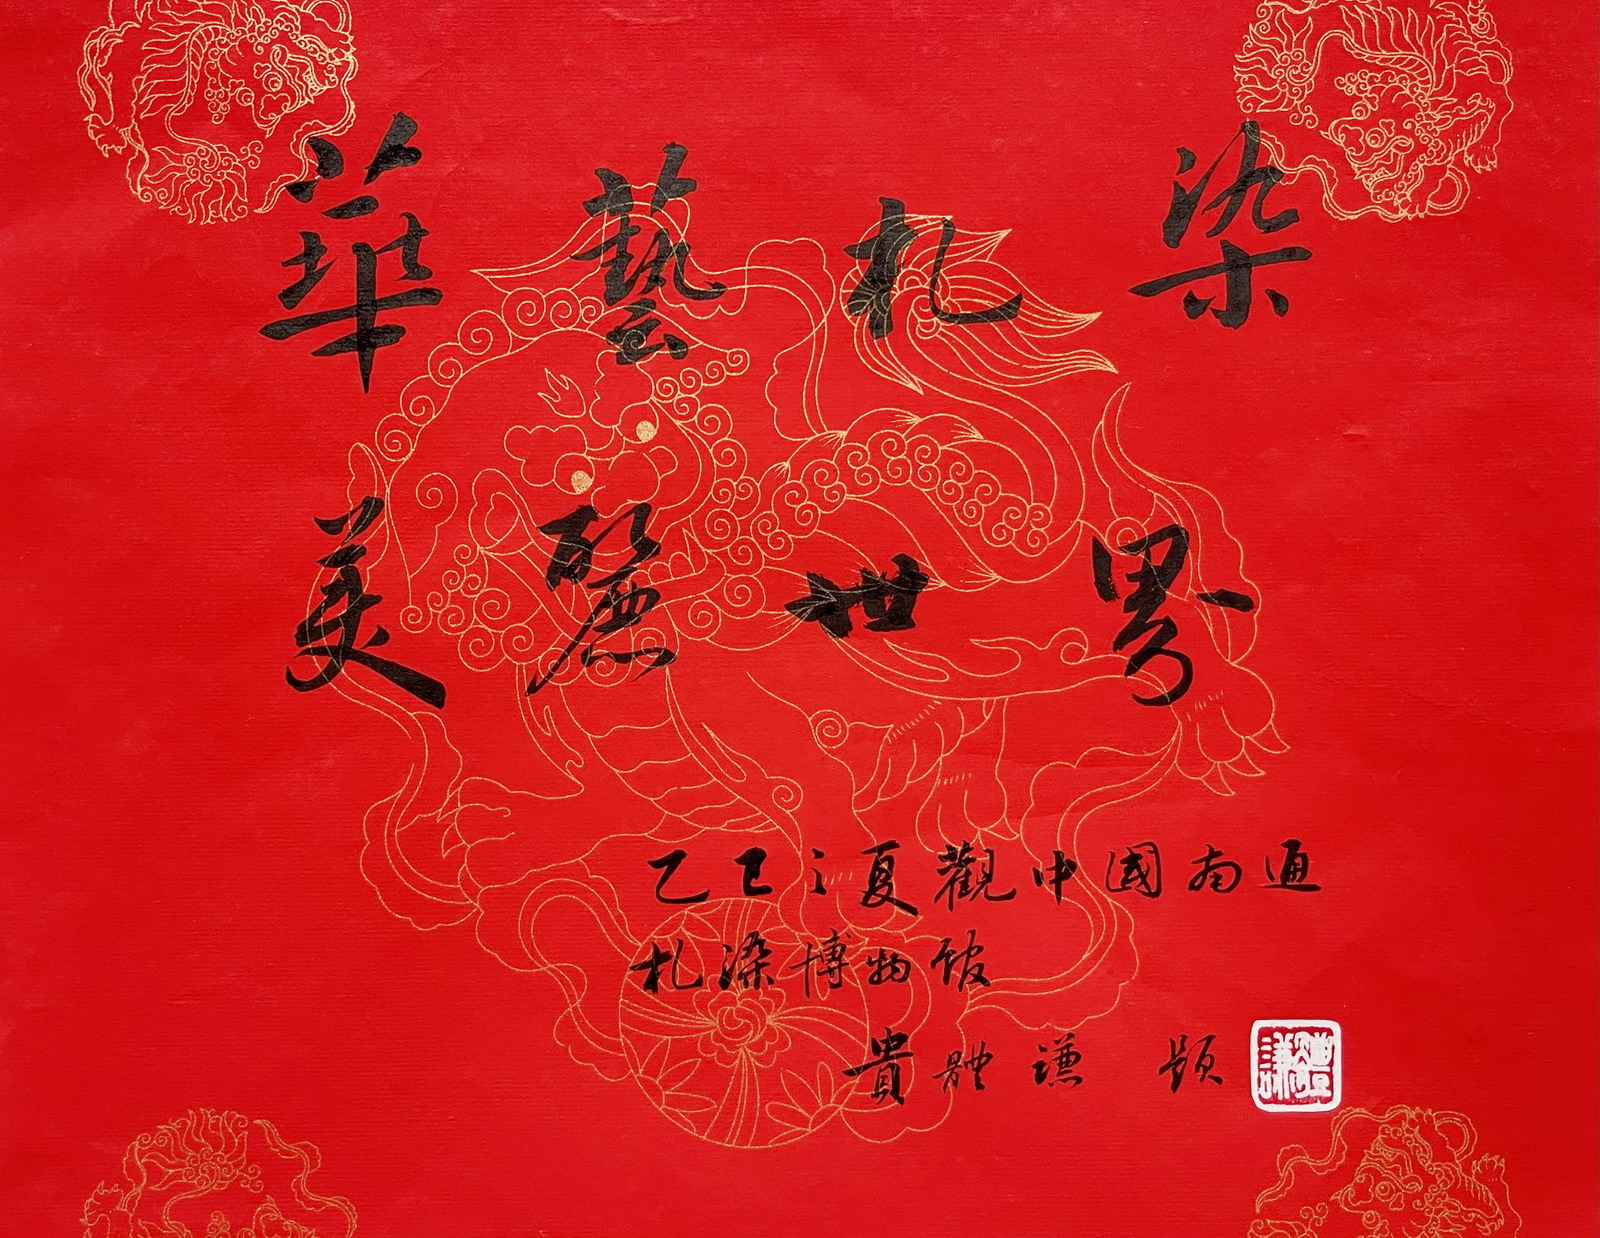 華藝札染
美麗世界
乙巳之夏觀中國南通
札染博物館
貴體謙 題